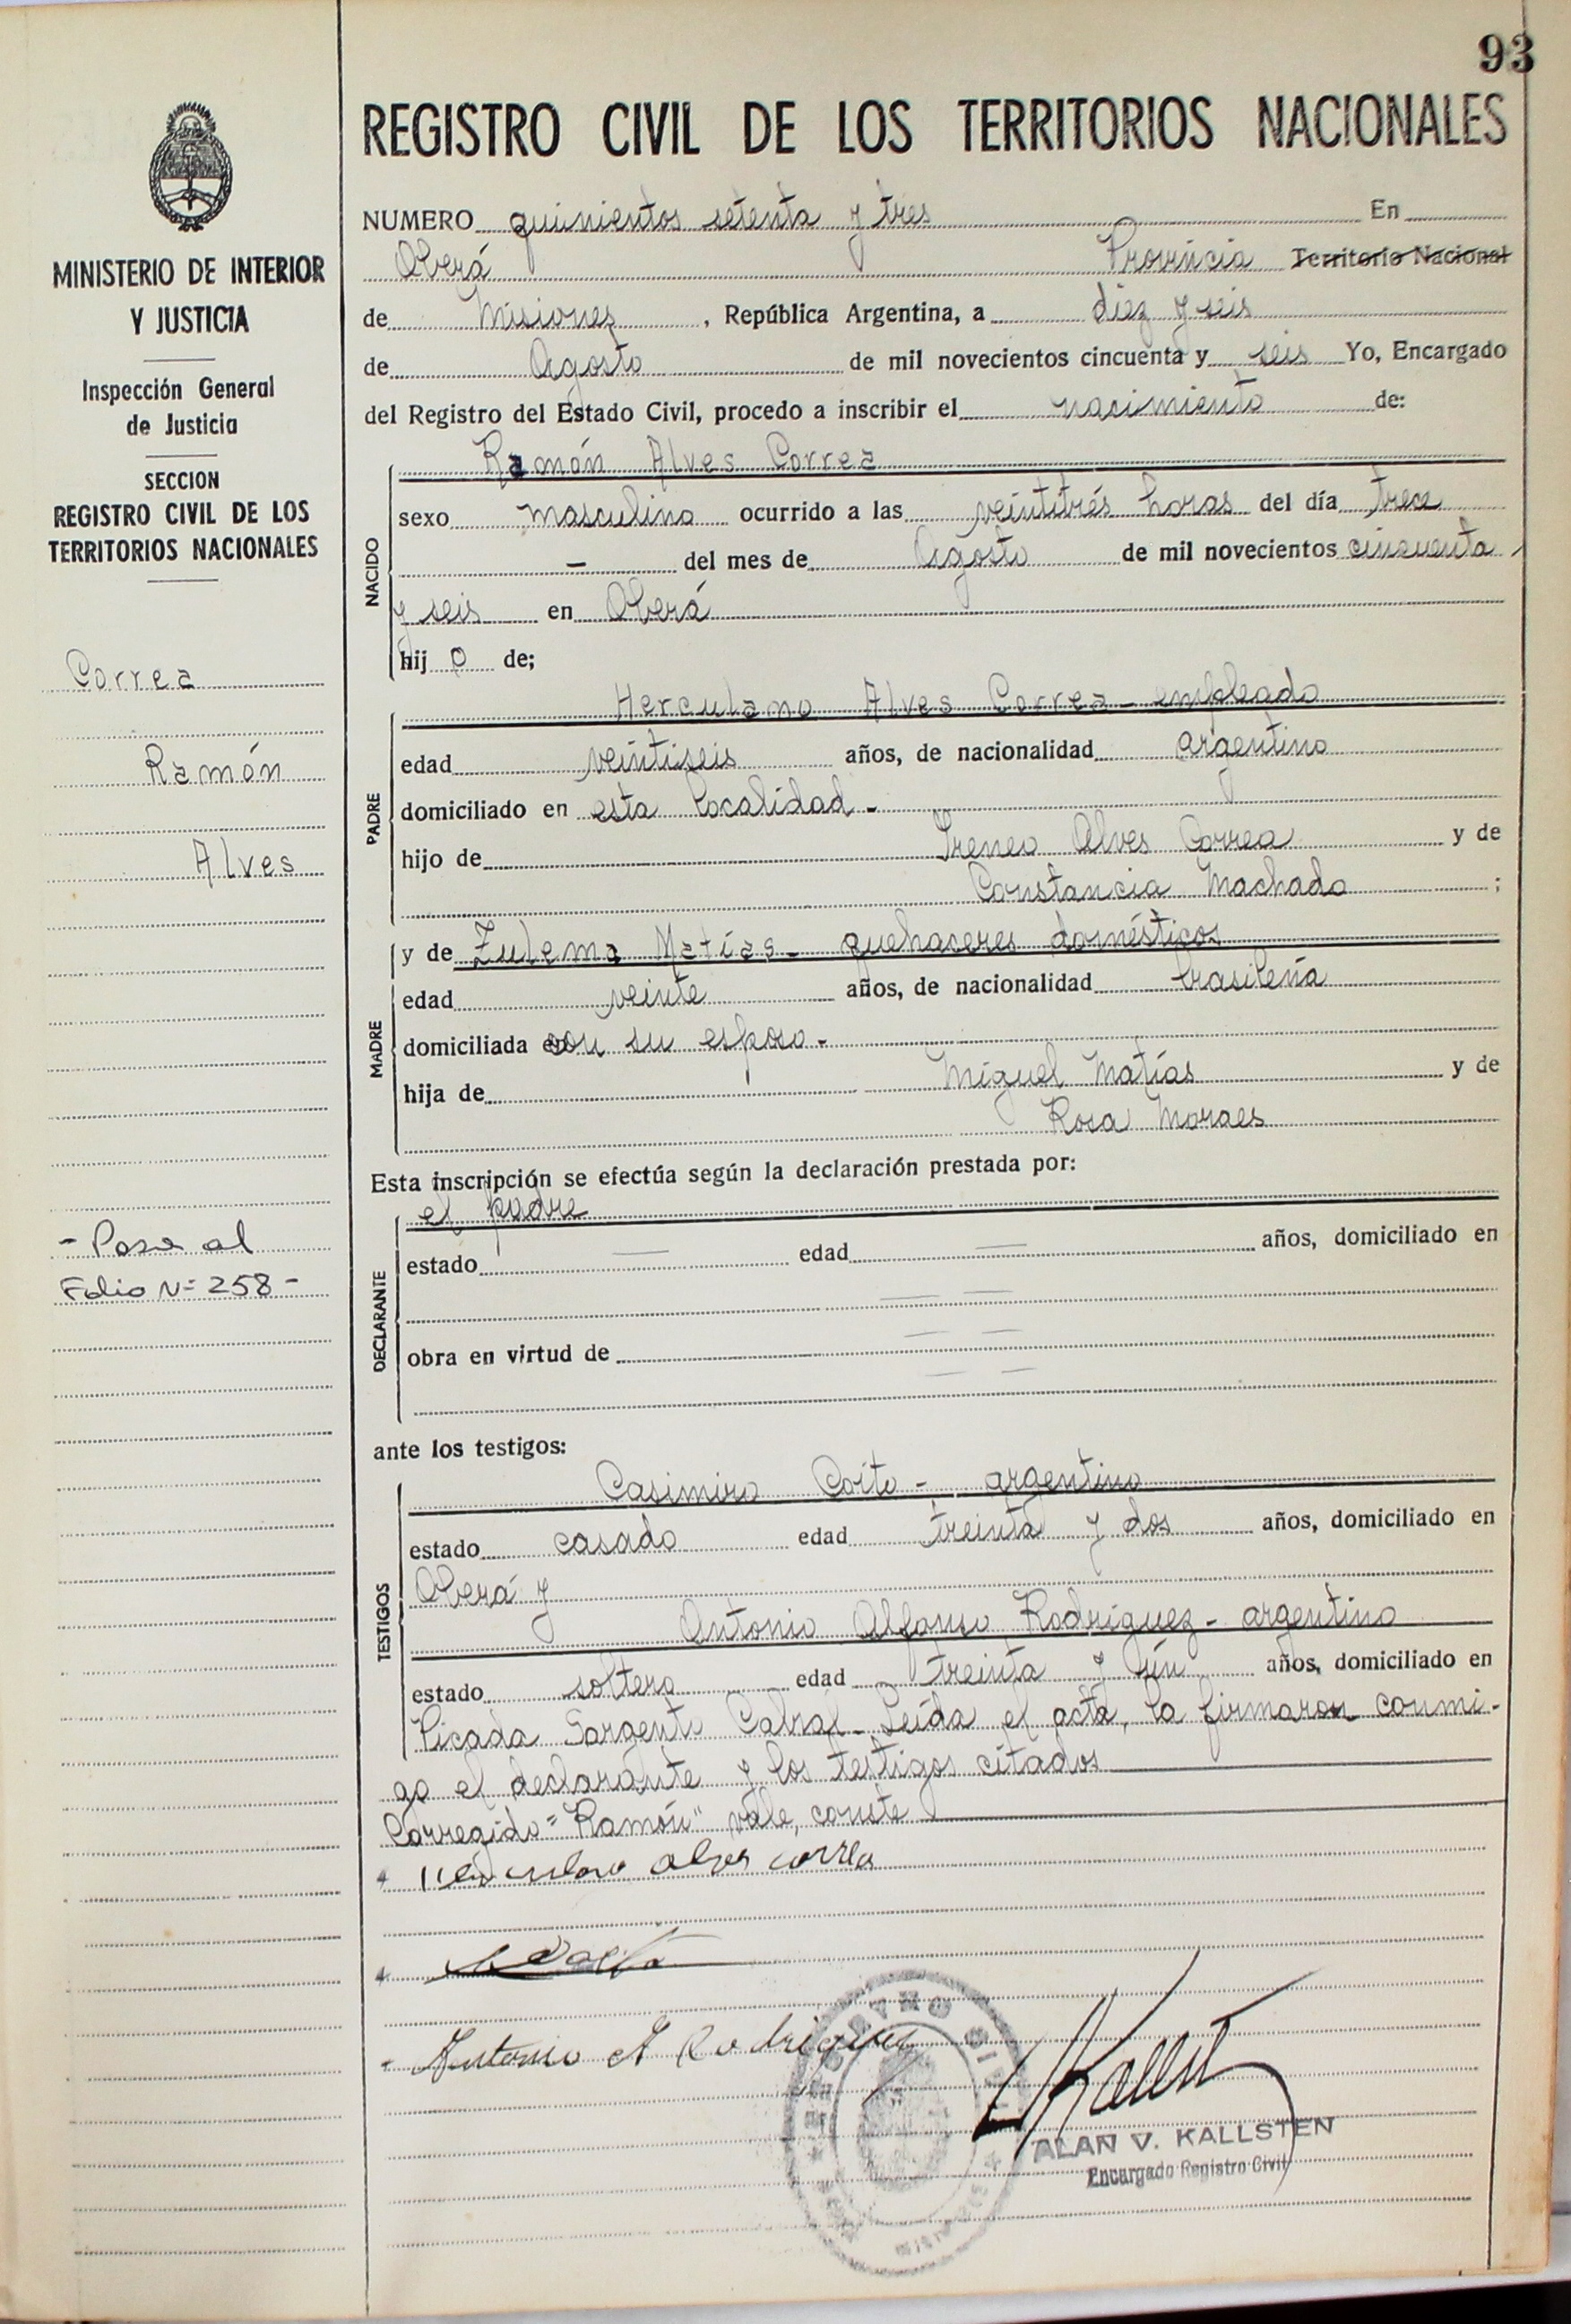 93
REGISTRO CIVIL DE LOS TERRITORIOS NACIONALES
MINISTERIO DE INTERIOR
Y JUSTICIA
Inspección General
de Justicia
SECCION
REGISTRO CIVIL DE LOS
TERRITORIOS NACIONALES
Correa
Ramón
Alves
- Pase al
Folio Nº 258 -
NUMERO quinientos setenta y tres En
Oberá Provincia Territorio Nacional
de Misiones, República Argentina, a diez y seis
de Agosto de mil novecientos cincuenta y seis Yo, Encargado
del Registro del Estado Civil, procedo a inscribir el nacimiento de:
NACIDO
Ramón Alves Correa
sexo masculino ocurrido a las veintitrés horas del día trece
- del mes de Agosto de mil novecientos cincuenta
y seis en Oberá
hij o de;
PADRE
Herculano Alves Correa - empleado
edad veintiseis años, de nacionalidad argentino
domiciliado en esta localidad -
hijo de Ireneo Alves Correa y de
Constancia Machado ;
MADRE
y de Zulema Matías - quehaceres domésticos
edad veinte años, de nacionalidad brasileña
domiciliada con su esposo -
hija de Miguel Matías y de
Rosa Moraes
Esta inscripción se efectúa según la declaración prestada por:
DECLARANTE
el padre
estado — edad — años, domiciliado en
— —
obra en virtud de — —
— —
ante los testigos:
TESTIGOS
Casimiro Coito - argentino
estado casado edad treinta y dos años, domiciliado en
Oberá y
Antonio Alfonso Rodríguez - argentino
estado soltero edad treinta y un años, domiciliado en
Picada Sargento Cabral - Leída el acta, la firmaron conmi-
go el declarante y los testigos citados
Corregido = "Ramón" vale, conste
Herculano alves correa
Antonio A Rodriguez
Kallst
ALAN V. KALLSTEN
Encargado Registro Civil